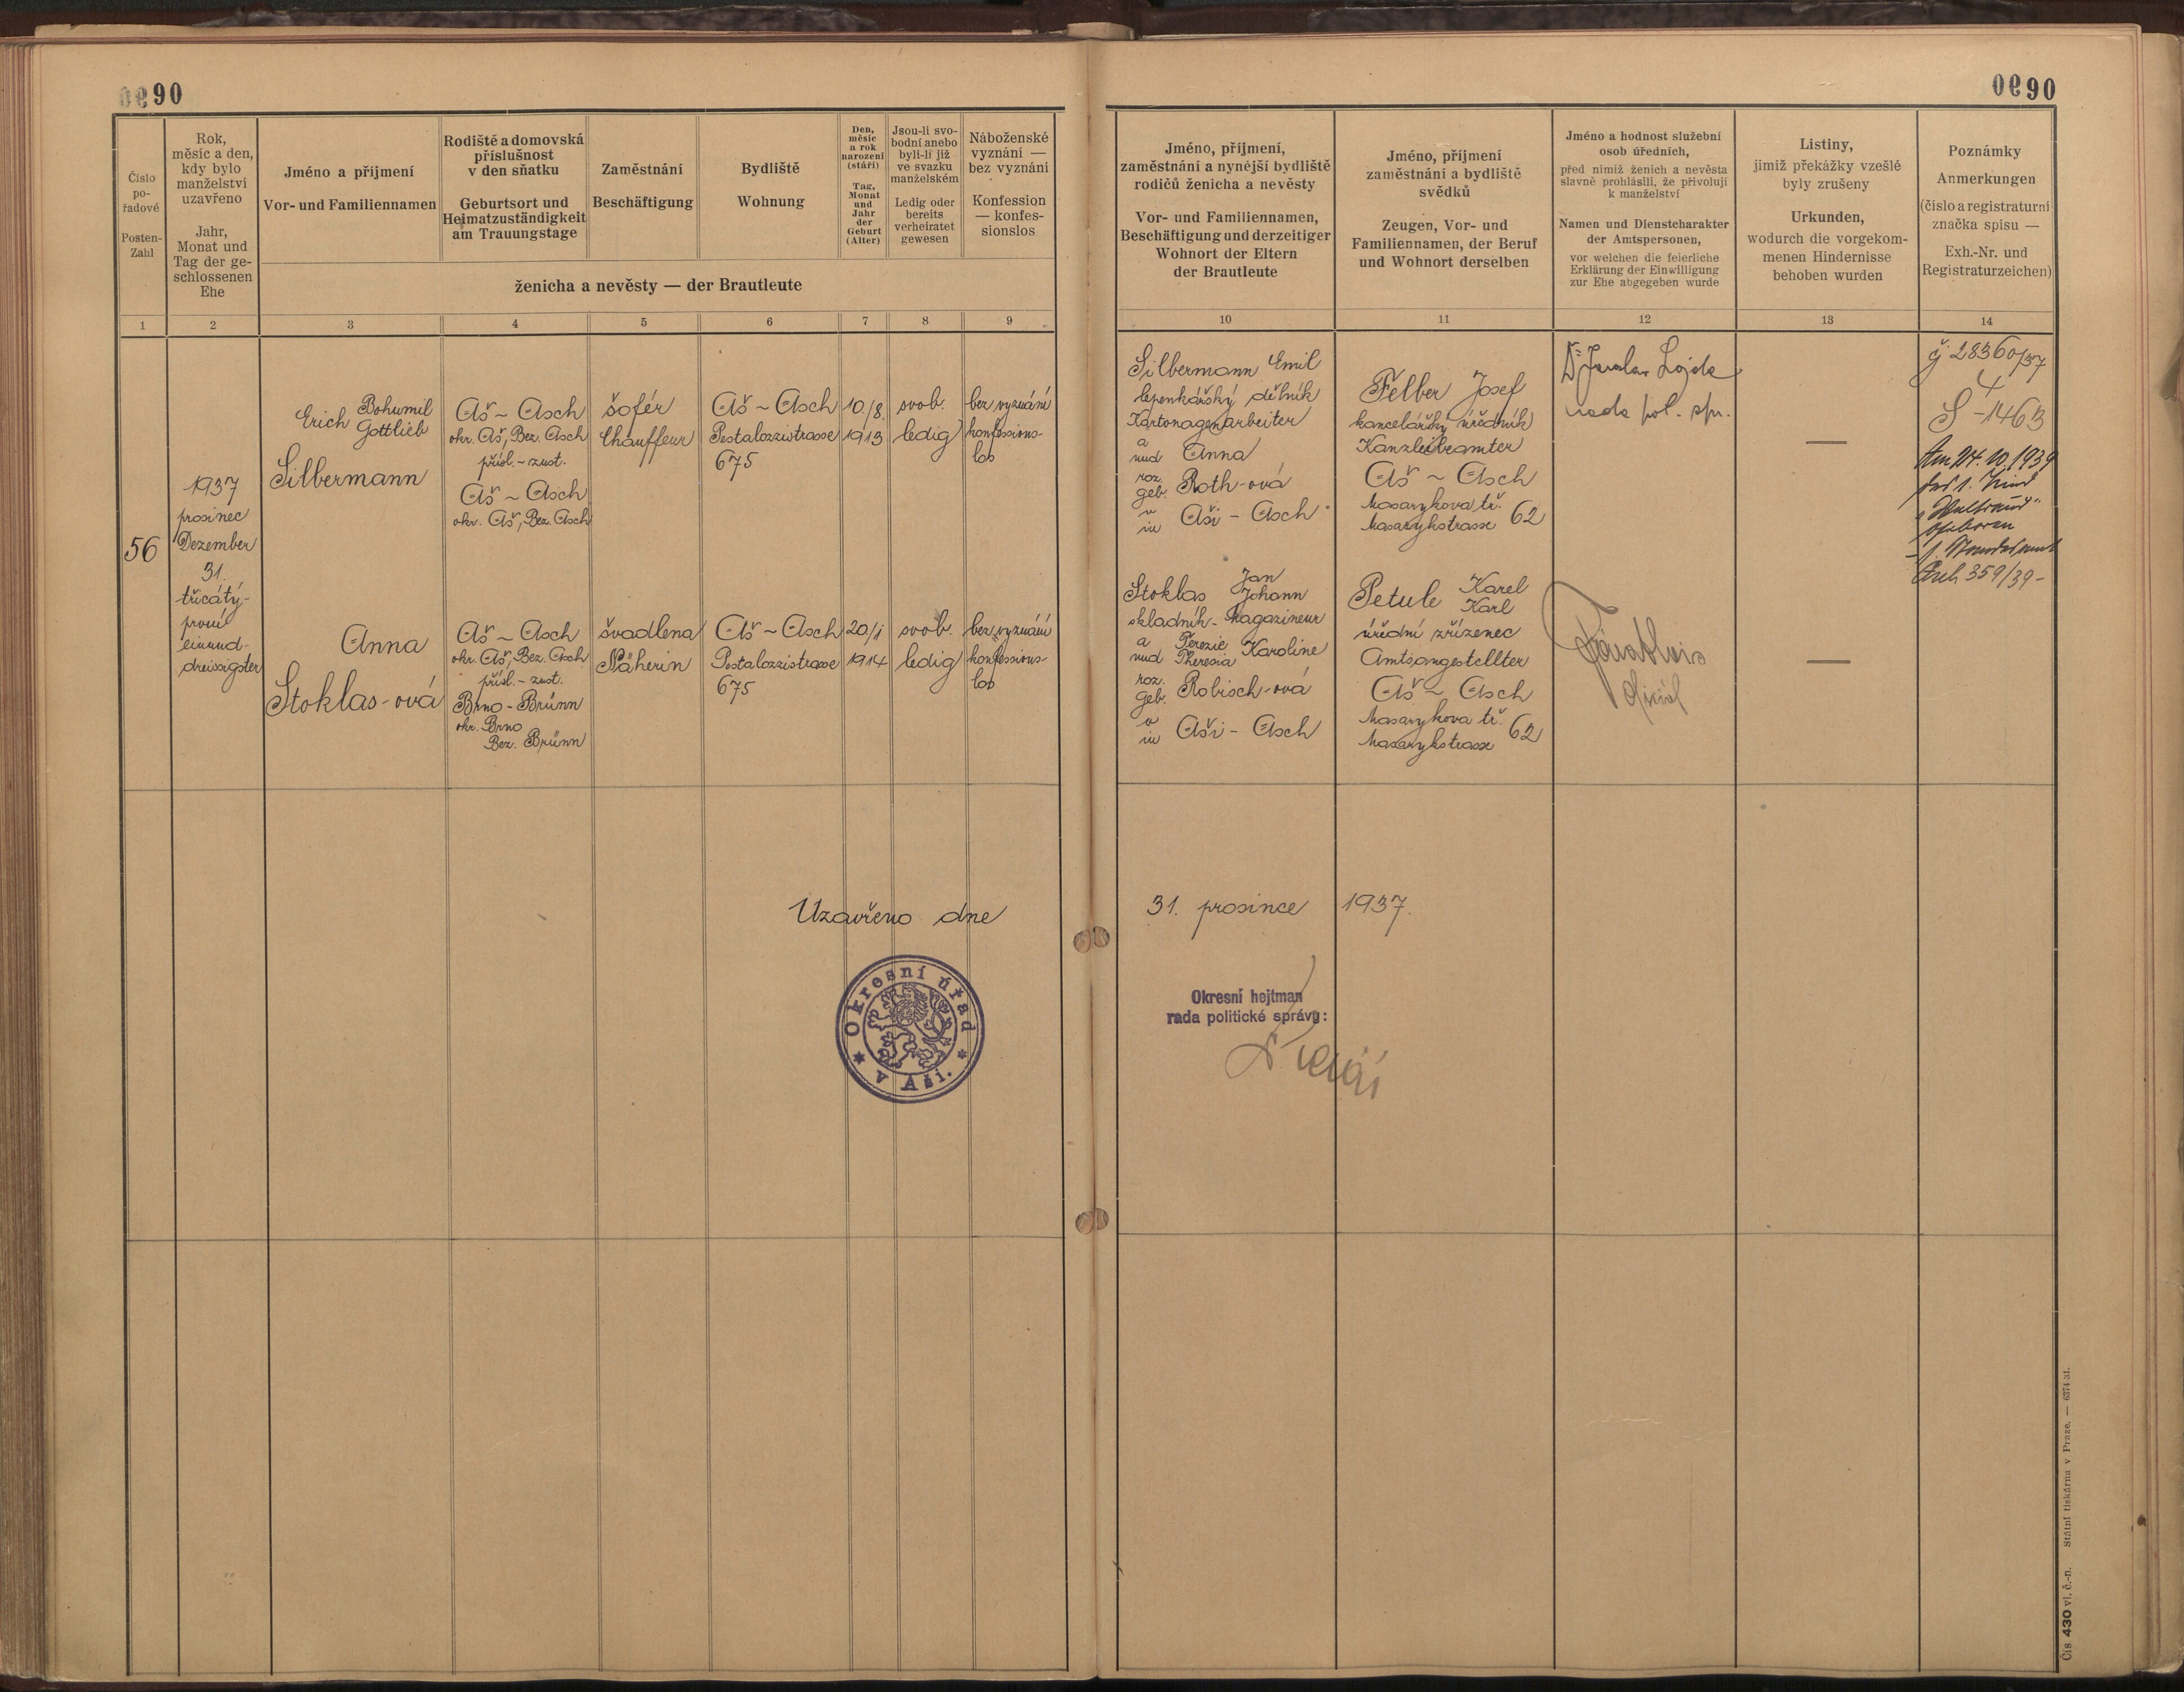 0690
Číslo
po-
řadové
Posten-
Zahl
Rok,
měsíc a den,
kdy bylo
manželství
uzavřeno
Jahr,
Monat und
Tag der ge-
schlossenen
Ehe
Jméno a příjmení
Vor- und Familiennamen
Rodiště a domovská
příslušnost
v den sňatku
Geburtsort und
Heimatzuständigkeit
am Trauungstage
Zaměstnání
Beschäftigung
Bydliště
Wohnung
Den,
měsíc
a rok
narození
(stáří)
Tag,
Monat
und
Jahr
der
Geburt
(Alter)
Jsou-li svo-
bodní anebo
byli-li již
ve svazku
manželském
Ledig oder
bereits
verheiratet
gewesen
Náboženské
vyznání —
bez vyznání
Konfession
— konfes-
sionslos
ženicha a nevěsty — der Brautleute
1 2 3 4 5 6 7 8 9
56
1937
prosinec
Dezember
31.
třicátý-
první
einund-
dreissigster
Erich Bohumil
Gottlieb
Silbermann
Aš ~ Asch
okr. Aš, Bez. Asch
přísl. - zust.
Aš ~ Asch
okr. Aš, Bez. Asch
šofér
Chauffeur
Aš ~ Asch
Pestalozzistrasse
675
10./8.
1913
svob.
ledig
bez vyznání
konfessions-
los
Anna
Stoklas-ová
Aš ~ Asch
okr. Aš, Bez. Asch
přísl. - zust.
Brno - Brünn
okr. Brno
Bez. Brünn
švadlena
Näherin
Aš ~ Asch
Pestalozzistrasse
675
20/1
1914
svob.
ledig
bez vyznání
konfessions-
los
Uzavřeno dne
Okresní úřad
* v Aši. *
0690
Jméno, příjmení,
zaměstnání a nynější bydliště
rodičů ženicha a nevěsty
Vor- und Familiennamen,
Beschäftigung und derzeitiger
Wohnort der Eltern
der Brautleute
Jméno, příjmení
zaměstnání a bydliště
svědků
Zeugen, Vor- und
Familiennamen, der Beruf
und Wohnort derselben
Jméno a hodnost služební
osob úředních,
před nimiž ženich a nevěsta
slavně prohlásili, že přivolují
k manželství
Namen und Dienstcharakter
der Amtspersonen,
vor welchen die feierliche
Erklärung der Einwilligung
zur Ehe abgegeben wurde
Listiny,
jimiž překážky vzešlé
byly zrušeny
Urkunden,
wodurch die vorgekom-
menen Hindernisse
behoben wurden
Poznámky
Anmerkungen
(číslo a registraturní
značka spisu —
Exh.-Nr. und
Registraturzeichen)
10 11 12 13 14
Silbermann Emil
lepenkářský dělník
Kartonagenarbeiter
a
und Anna
roz.
geb. Roth-ová
v
in Aši - Asch
Felber Josef
kancelářský úředník
Kanzleibeamter
Aš ~ Asch
Masarykova tř.
Masarykstrasse 62
Dr. Jaroslav Lojda
rada pol. spr.
—
čj 28360/37
4
S - 1463
Am 24. 10. 1939
das 1. Kind
"Waltraud"
geboren
359/39 -
Stoklas Jan
Johann
skladník - Magazineur
a
und Terezie
Theresia Karoline
roz.
geb. Robisch-ová
v
in Aši - Asch
Petule Karel
Karl
úřední zřízenec
Amtsangestellter
Aš ~ Asch
Masarykova tř.
Masarykstrasse 62
—
31. prosince 1937.
Okresní hejtman
rada politické správy:
Čís 430 vl. č.-n. Státní tiskárna v Praze. — 6374-31.